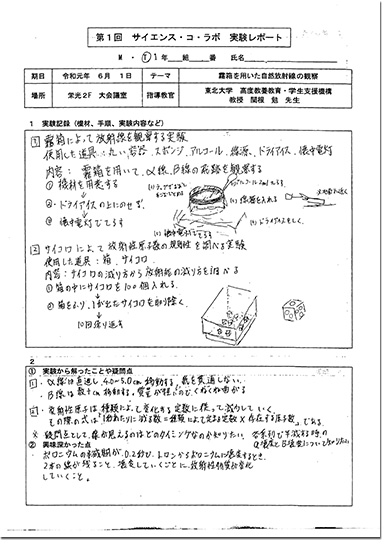 第1回 サイエンス・コ・ラボ 実験レポート
M・T 1年 組 番 氏名
期日 令和元年 6月 1日 テーマ 霧箱を用いた自然放射線の観察
場所 栄光2F 大会議室 指導教官 東北大学 高度教養教育・学生支援機構
教授 関根 勉 先生
1 実験記録(機材、手順、実験内容など)
1 霧箱によって放射線を観察する実験
使用した道具:丸い容器、スポンジ、アルコール、線源、ドライアイス、懐中電灯
内容:霧箱を用いて、α線、β線の飛跡を観察する
① 機材を用意する
② ドライアイスの上にのせる
③ 懐中電灯でてらす
2 サイコロによって放射性原子数の規則性を調べる実験
使用した道具:箱、サイコロ
内容:サイコロの減り方から放射能の減り方を調べる
① 箱の中にサイコロを100個入れる
② 箱をふり、1が出たサイコロを取り除く
10回繰り返す
2
① 実験から解ったことや疑問点
1・α線は直進し、4.0〜5.0cm移動する。紙を貫通しない。
・β線は数十cm移動する。質量が軽いので、くねくね曲がる
2・放射性原子は種類によって変化する定数に従って減少していく。
その際の式は「1秒あたりに減る数=種類によって定まる定数×存在する原子数」である。
※疑問点として、霧が見えるのはどのタイミングなのか知りたい。
② 興味深かった点
ポロニウムの半減期が、0.2秒で、トロンからポロニウムに壊変するとき、
2本の線が残ること。壊変していくごとに、放射性物質が変化
していくこと。